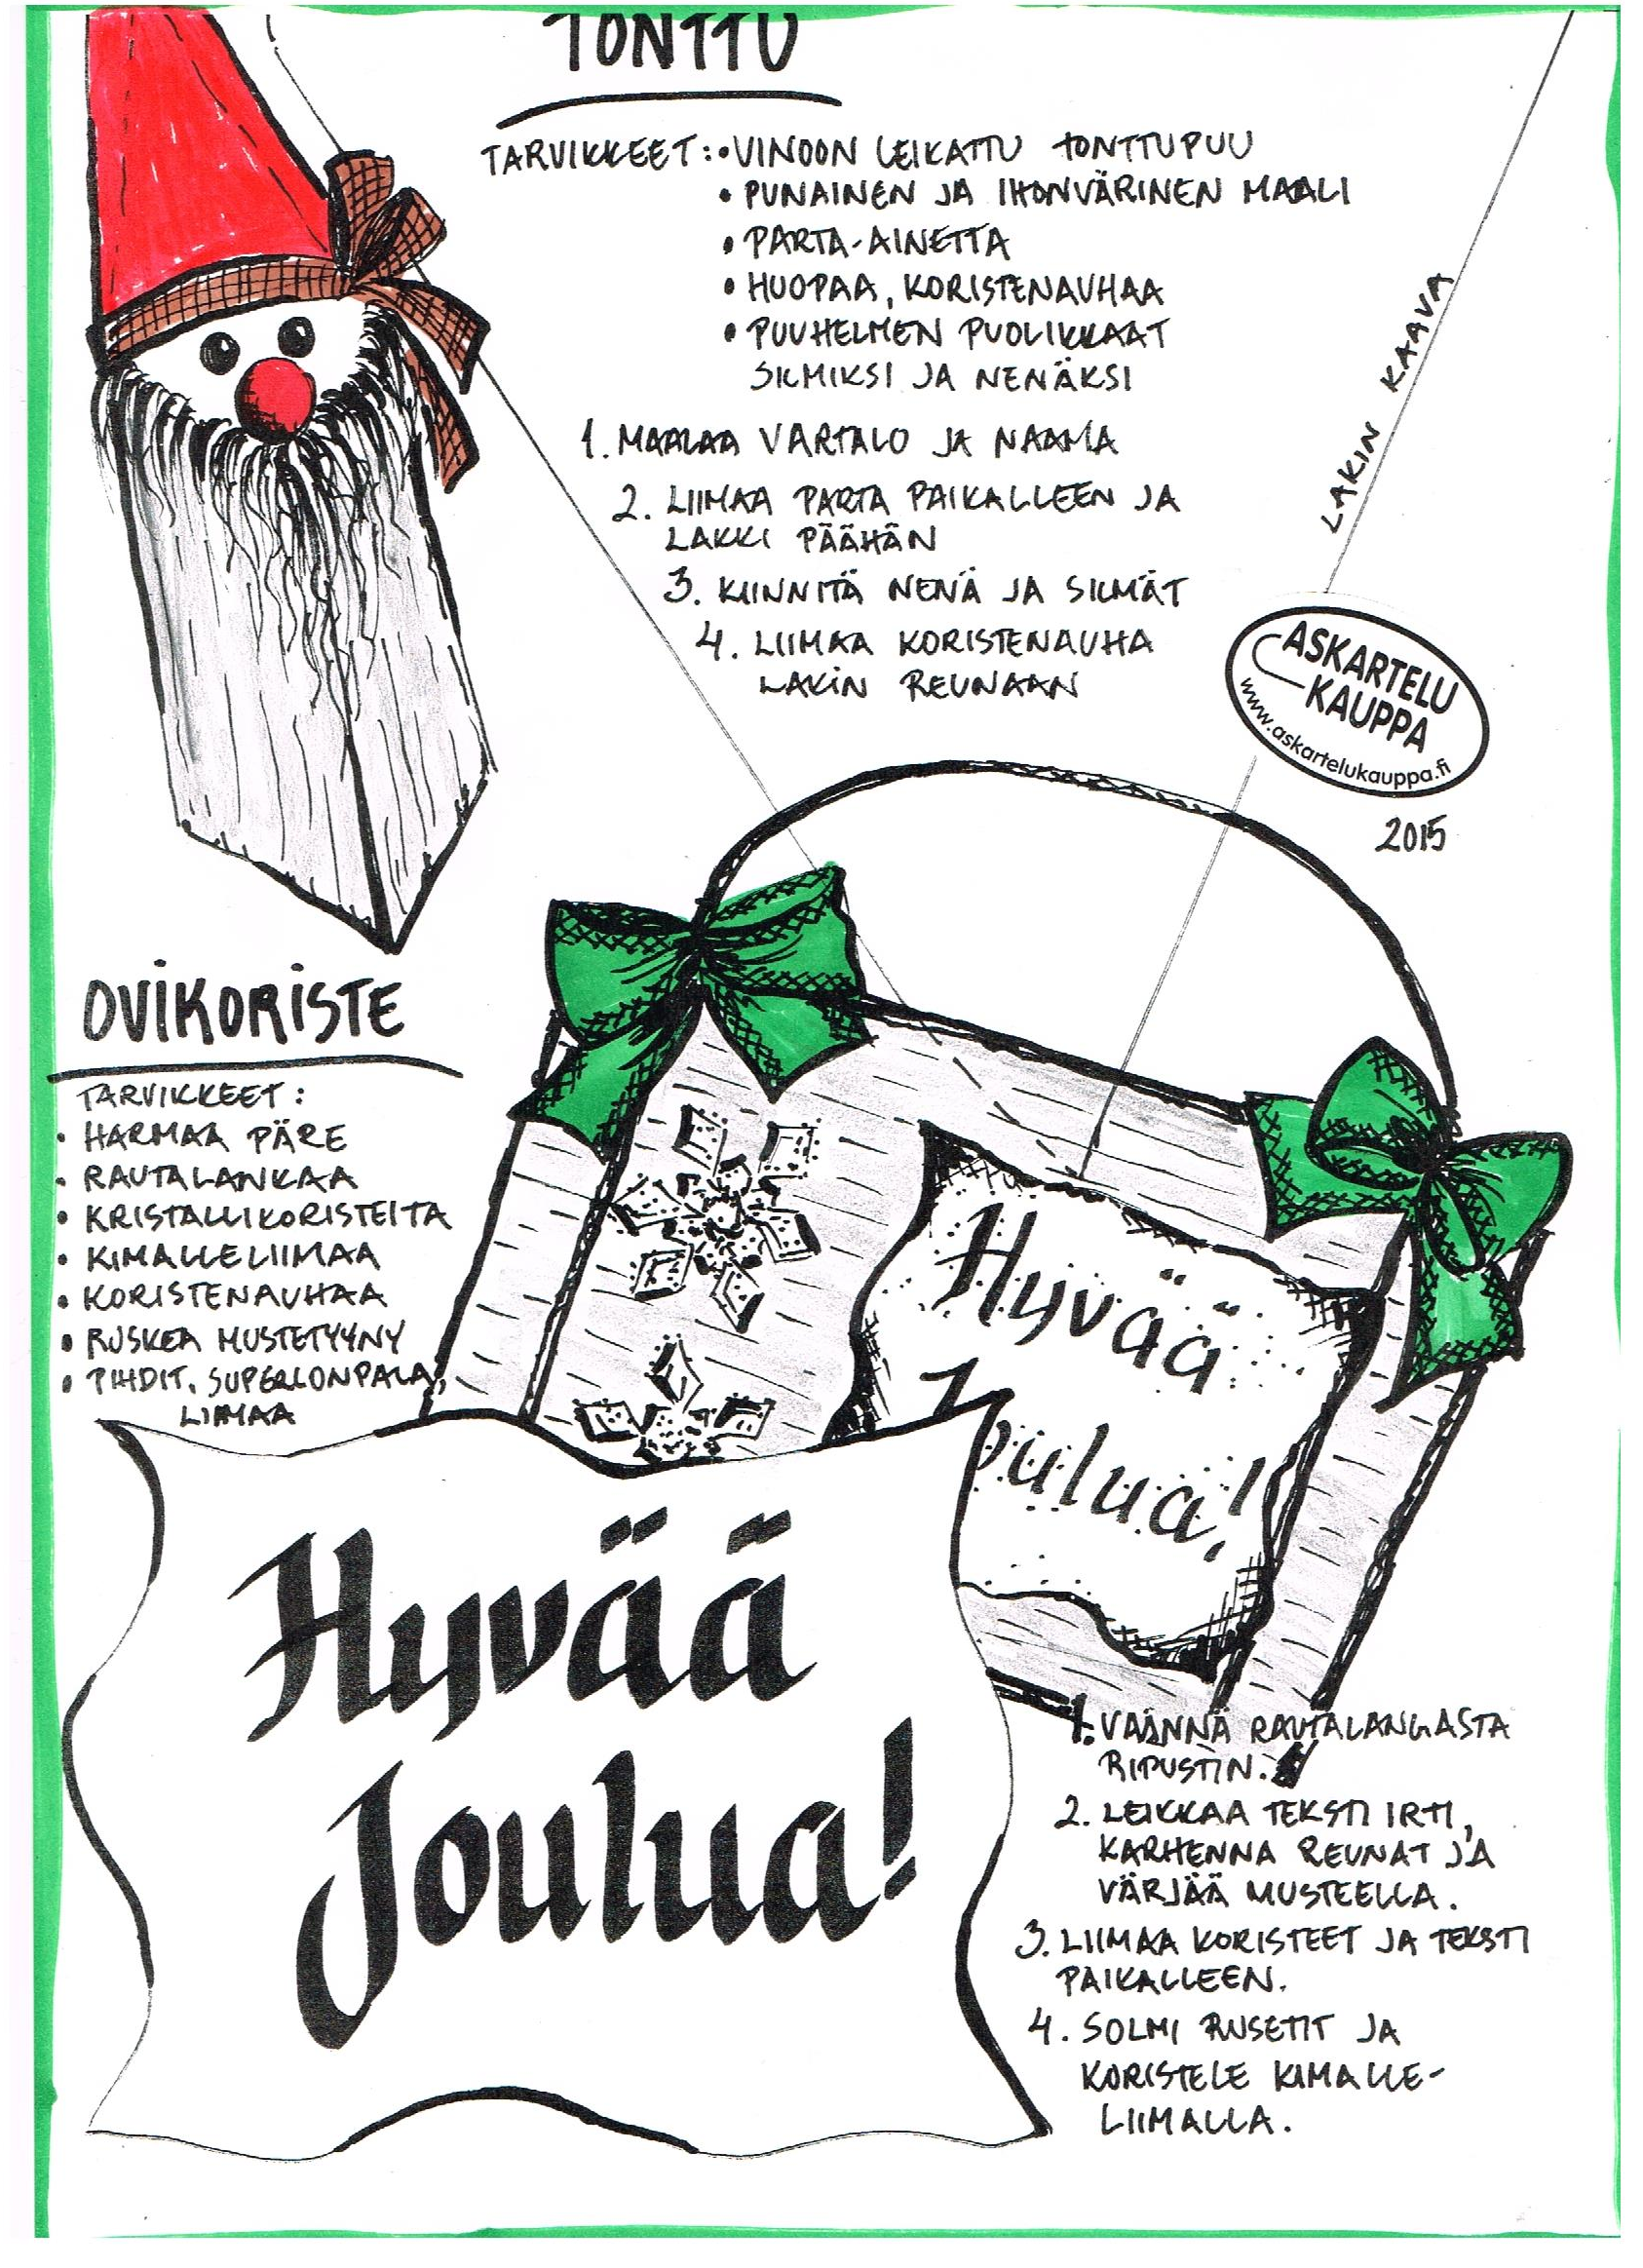 TONTTU
TARVIKKEET: • VINOON LEIKATTU TONTTUPUU
• PUNAINEN JA IHONVÄRINEN MAALI
• PARTA-AINETTA
• HUOPAA, KORISTENAUHAA
• PUUHELMEN PUOLIKKAAT
SILMIKSI JA NENÄKSI
1. MAALAA VARTALO JA NAAMA
2. LIIMAA PARTA PAIKALLEEN JA
LAKKI PÄÄHÄN
3. KIINNITÄ NENÄ JA SILMÄT
4. LIIMAA KORISTENAUHA
LAKIN REUNAAN
LAKIN KAAVA
ASKARTELU
KAUPPA
www.askartelukauppa.fi
2015
OVIKORISTE
TARVIKKEET:
• HARMAA PÄRE
• RAUTALANKAA
• KRISTALLIKORISTEITA
• KIMALLELIIMAA
• KORISTENAUHAA
• RUSKEA MUSTETYYNY
• PIHDIT, SUPERLONPALA,
LIIMAA
Hyvää
Joulua!
Hyvää
Joulua!
1. VÄÄNNÄ RAUTALANGASTA
RIPUSTIN.
2. LEIKKAA TEKSTI IRTI,
KARHENNA REUNAT JA
VÄRJÄÄ MUSTEELLA.
3. LIIMAA KORISTEET JA TEKSTI
PAIKALLEEN.
4. SOLMI RUSETIT JA
KORISTELE KIMALLE-
LIIMALLA.